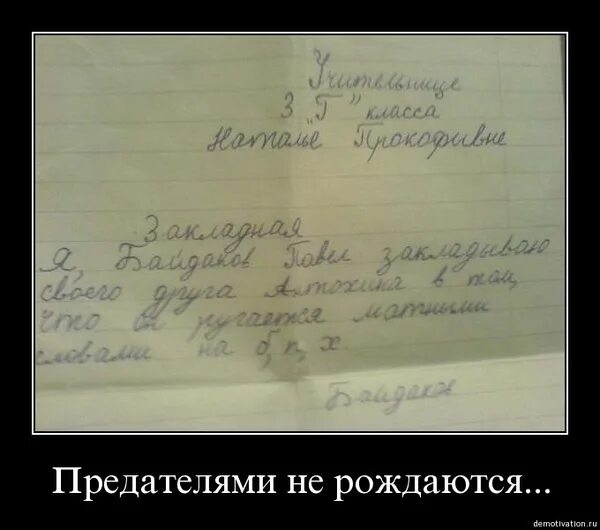 Учительнице
3 "Г" класса
Наталье Прокофывне
Закладная
Я, Байдаков Павел закладываю
своего друга Антохина в том,
что он ругается матными
словами на б, п, х.
Байдаков
Предателями не рождаются...
demotivation.ru